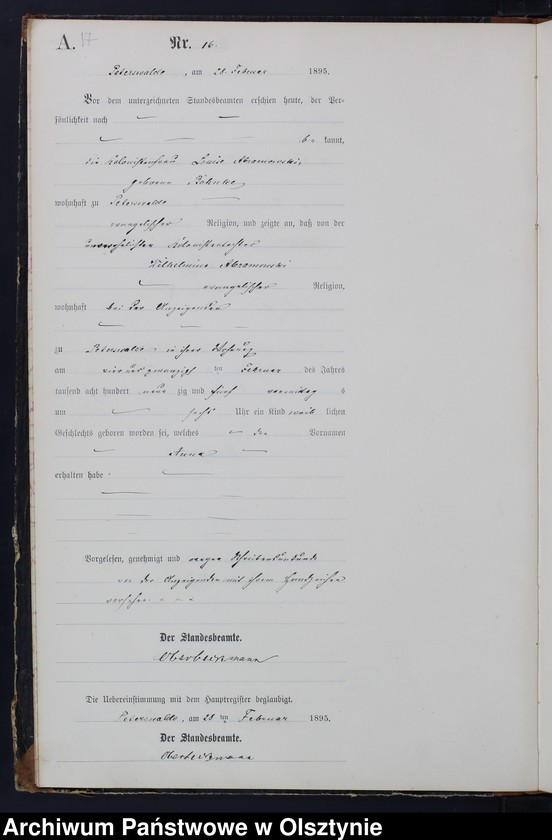 A. 17
Nr. 16.
Peterswalde, am 28. Februar 1895.
Vor dem unterzeichneten Standesbeamten erschien heute, der Per-
sönlichkeit nach
be kannt,
die Kolonistenfrau Louise Abramowski,
geborene Böhnke
wohnhaft zu Peterswalde
evangelischer Religion, und zeigte an, daß von der
unverehelichten Kolonistentochter
Wilhelmine Abramowski
evangelischer Religion,
wohnhaft bei der Anzeigenden
zu Peterswalde in ihrer Wohnung
am vier und zwanzigsten Februar des Jahres
tausend acht hundert neun zig und fünf vormittags
um sechs Uhr ein Kind weib lichen
Geschlechts geboren worden sei, welches den Vornamen
Anna
erhalten habe
Vorgelesen, genehmigt und wegen Schreibensunkunde
von der Anzeigenden mit ihrem Handzeichen
versehen.
Der Standesbeamte.
Oberbeckmann
Die Uebereinstimmung mit dem Hauptregister beglaubigt.
Peterswalde, am 28 ten Februar 1895.
Der Standesbeamte.
Oberbeckmann
Archiwum Państwowe w Olsztynie